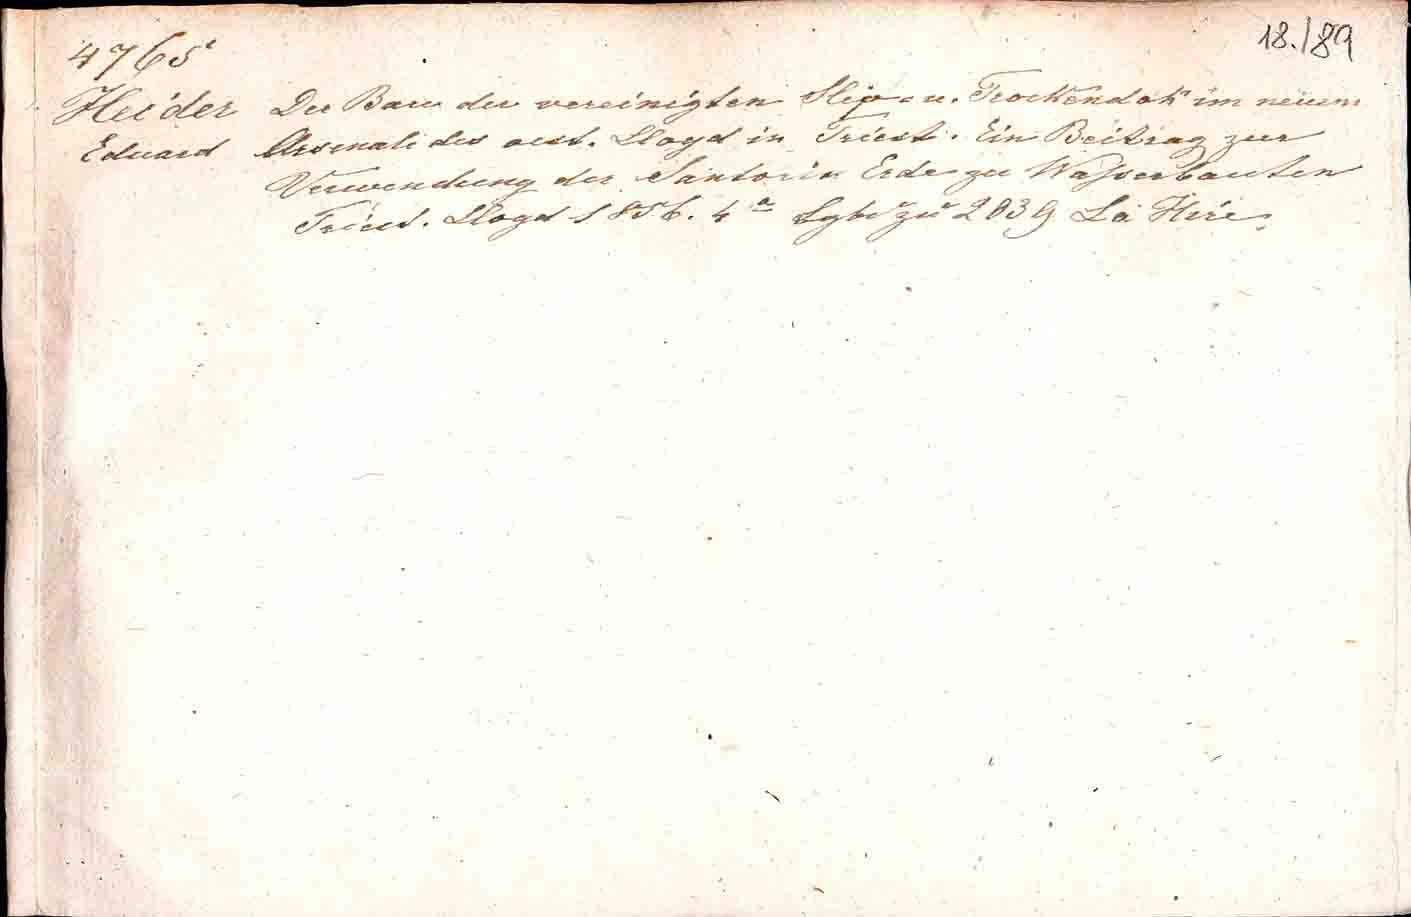 18./89
4765
Heider Der Bau der vereinigten Slip- u. Trockendok im neuen
Eduard Arsenale des oest. Lloyd in Triest. Ein Beitrag zur
Verwendung der Santorin Erde zu Wasserbauten
Triest. Lloyd 1856. 4° zu 2039 La Hire.